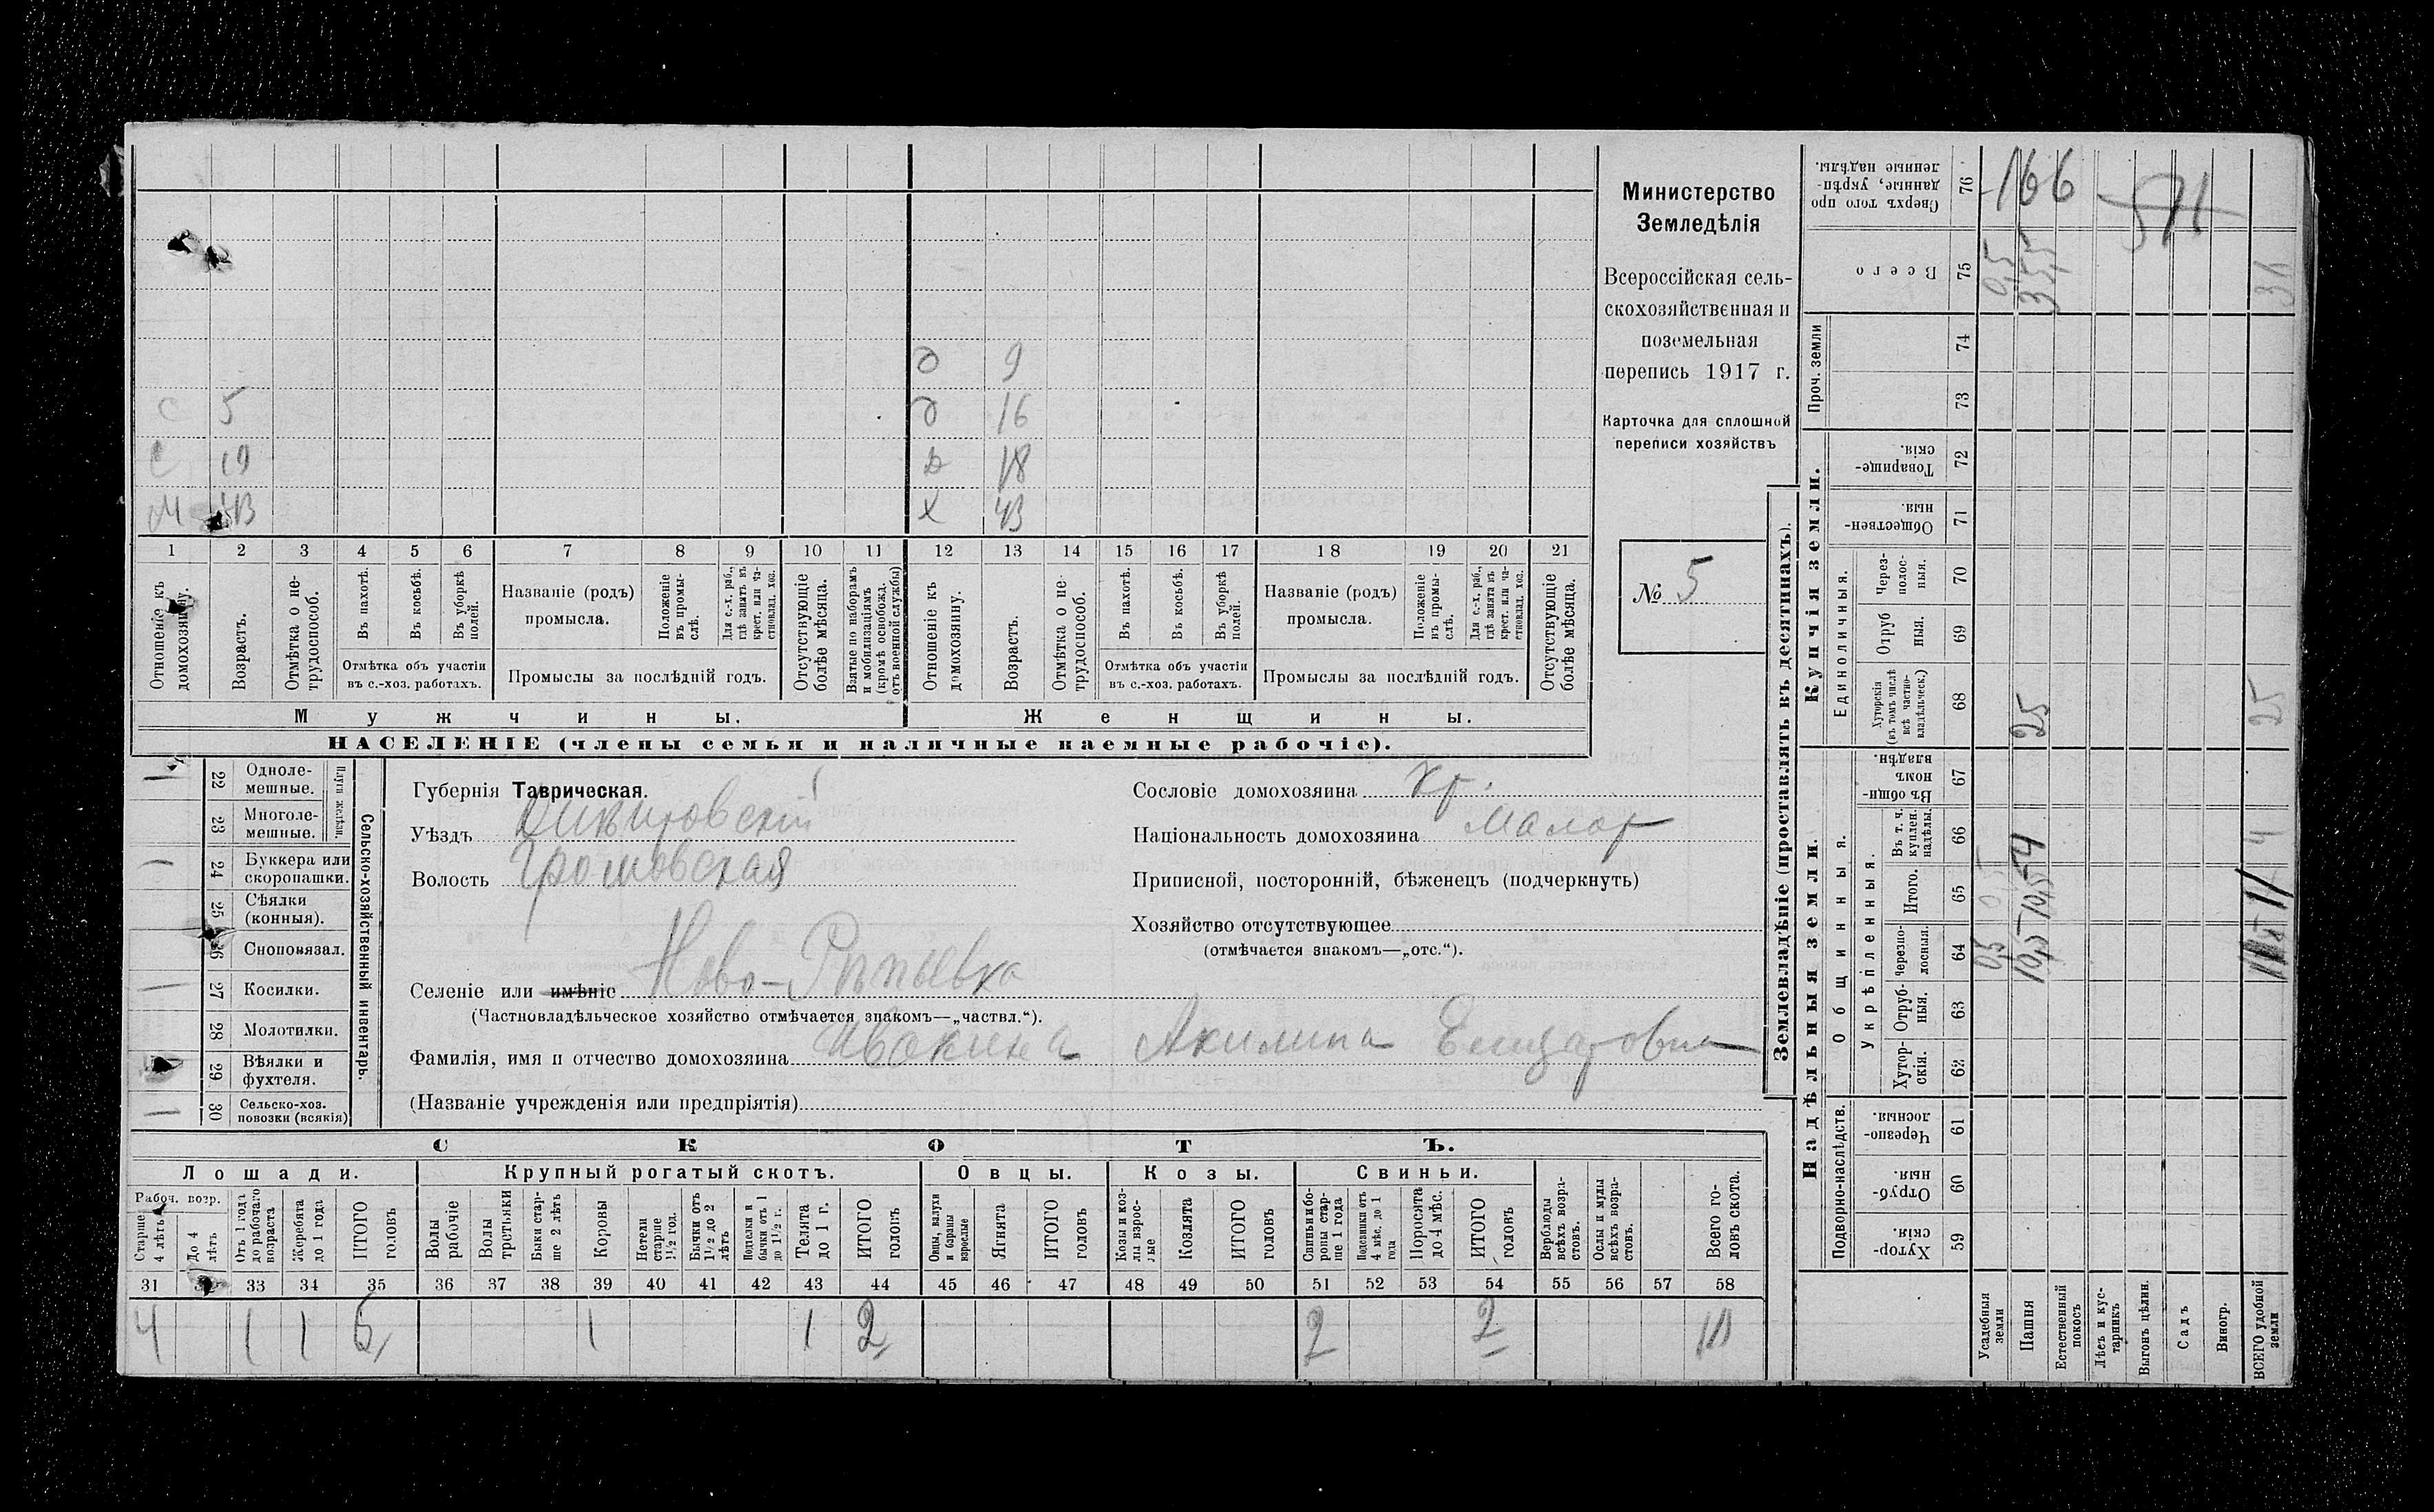 Министерство
Земледѣлія
Всероссійская сель-
скохозяйственная и
поземельная
перепись 1917 г.
Карточка для сплошной
переписи хозяйствъ
№ 5
д 9
с 5 д 16
с 19 д 18
м 43 х 43
1 2 3 4 5 6 7 8 9 10 11 12 13 14 15 16 17 18 19 20 21
Отношеніе къ домохозяину.
Возрастъ.
Отмѣтка о не-трудоспособ.
Въ пахотѣ.
Въ косьбѣ.
Въ уборкѣ полей.
Отмѣтка объ участіи
въ с.-хоз. работахъ.
Названіе (родъ)
промысла.
Положеніе въ промы-слѣ.
Для с.-х. раб., гдѣ занятъ въ крест. или ча-стновлад. хоз.
Промыслы за послѣдній годъ.
Отсутствующіе болѣе мѣсяца.
Взятые по наборамъ и мобилизаціямъ (кромѣ освобожд. отъ военной службы)
Отношеніе къ домохозяину.
Возрастъ.
Отмѣтка о не-трудоспособ.
Въ пахотѣ.
Въ косьбѣ.
Въ уборкѣ полей.
Отмѣтка объ участіи
въ с.-хоз. работахъ.
Названіе (родъ)
промысла.
Положеніе въ промы-слѣ.
Для с.-х. раб., гдѣ занята въ крест. или ча-стновлад. хоз.
Промыслы за послѣдній годъ.
Отсутствующіе болѣе мѣсяца.
Мужчины. Женщины.
НАСЕЛЕНІЕ (члены семьи и наличные наемные рабочіе).
Сельско-хозяйственный инвентарь.
Плуги желѣзн.
22 Одноле-мешные. 1
23 Многоле-мешные.
24 Буккера или скоропашки. 1
25 Сѣялки (конныя).
26 Сноповязал.
27 Косилки. 1
28 Молотилки.
29 Вѣялки и фухтеля.
30 Сельско-хоз. повозки (всякія) 1
Губернія Таврическая.
Уѣздъ
Волость
Селеніе или имѣніе Ново-
(Частновладѣльческое хозяйство отмѣчается знакомъ—„частвл.“).
Фамилія, имя и отчество домохозяина Ивакина Акилина
(Названіе учрежденія или предпріятія)
Сословіе домохозяина кр.
Національность домохозяина малор
Приписной, посторонній, бѣженецъ (подчеркнуть)
Хозяйство отсутствующее
(отмѣчается знакомъ—„отс.“).
СКОТЪ.
Лошади. Крупный рогатый скотъ. Овцы. Козы. Свиньи.
Рабоч. возр.
Старше 4 лѣтъ
До 4 лѣтъ
Отъ 1 года до рабочаго возраста
Жеребята до 1 года
ИТОГО головъ
Волы рабочіе
Волы третьяки
Быки стар-ше 2 лѣтъ
Коровы
Нетели старше 1½ год.
Бычки отъ 1½ до 2 лѣтъ
Подтелки и бычки отъ 1 до 1½ г.
Телята до 1 г.
ИТОГО головъ
Овцы, валухи и бараны взрослые
Ягнята
ИТОГО головъ
Козы и коз-лы взрос-лые
Козлята
ИТОГО головъ
Свиньи и бо-ровы стар-ше 1 года
Подсвинки отъ 4 мѣс. до 1 года
Поросята до 4 мѣс.
ИТОГО головъ
Верблюды всѣхъ возра-стовъ.
Ослы и мулы всѣхъ возра-стовъ.
Всего го-ловъ скота.
31 33 34 35 36 37 38 39 40 41 42 43 44 45 46 47 48 49 50 51 52 53 54 55 56 57 58
4 1 1 6 1 1 2 2 2 10
Землевладѣніе (проставлять въ десятинахъ).
Надѣльныя земли. Купчія земли. Проч. земли
Подворно-наслѣдств.
Общинныя.
Укрѣпленныя.
Единоличныя.
Хутор-скія. 59
Отруб-ныя. 60
Черезпо-лосныя. 61
Хутор-скія. 62
Отруб-ныя. 63
Черезпо-лосныя. 64
Итого. 65
Въ т. ч. куплен. надѣлы. 66
Въ общин-номъ владѣн. 67
Хуторскія (въ томъ числѣ всѣ частно-владѣльческ.) 68
Отруб ныя. 69
Через-полос-ныя. 70
Обществен-ныя. 71
Товарище-скія. 72
73
74
Всего 75
Сверхъ того про данные, укрѣп-ленные надѣлы. 76
Усадебныя земли 0,5 0,5 0,5
Пашня 10,5 10,5 4 25 35,5
Естественный покосъ
Лѣсъ и кус-тарникъ
Выгонъ цѣлин.
Садъ
Виногр.
ВСЕГО удобной земли 11 4 25
166